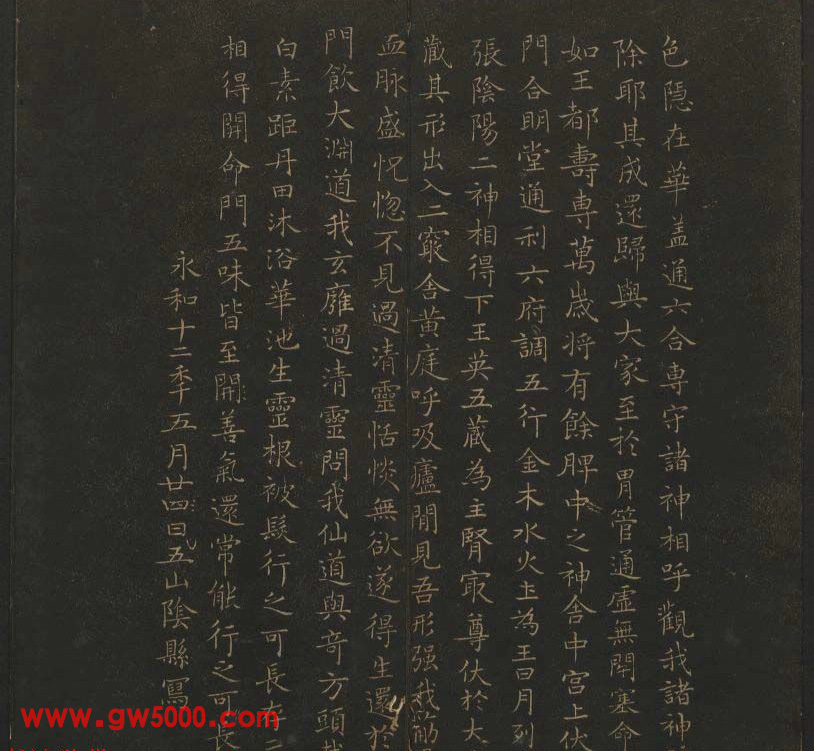 色隱在華盖通六合專守諸神相呼觀我諸神
除耶其成還歸與大家至於胃管通虛無閉塞命
如玉都壽專萬歲将有餘脾中之神舍中宫上伏
門合明堂通利六府調五行金木水火土為王日月列
張陰陽二神相得下玉英五藏為主腎冣尊伏於大
藏其形出入二竅舍黄庭呼吸廬間見吾形强我筋
血脉盛怳惚不見過清靈恬惔無欲遂得生還於
門飲大淵道我玄廱過清靈問我仙道與奇方頭
白素距丹田沐浴華池生靈根被髮行之可長存二
相得開命門五味皆至開善氣還常能行之可長
永和十二季五月廿四日五山陰縣寫
www.gw5000.com